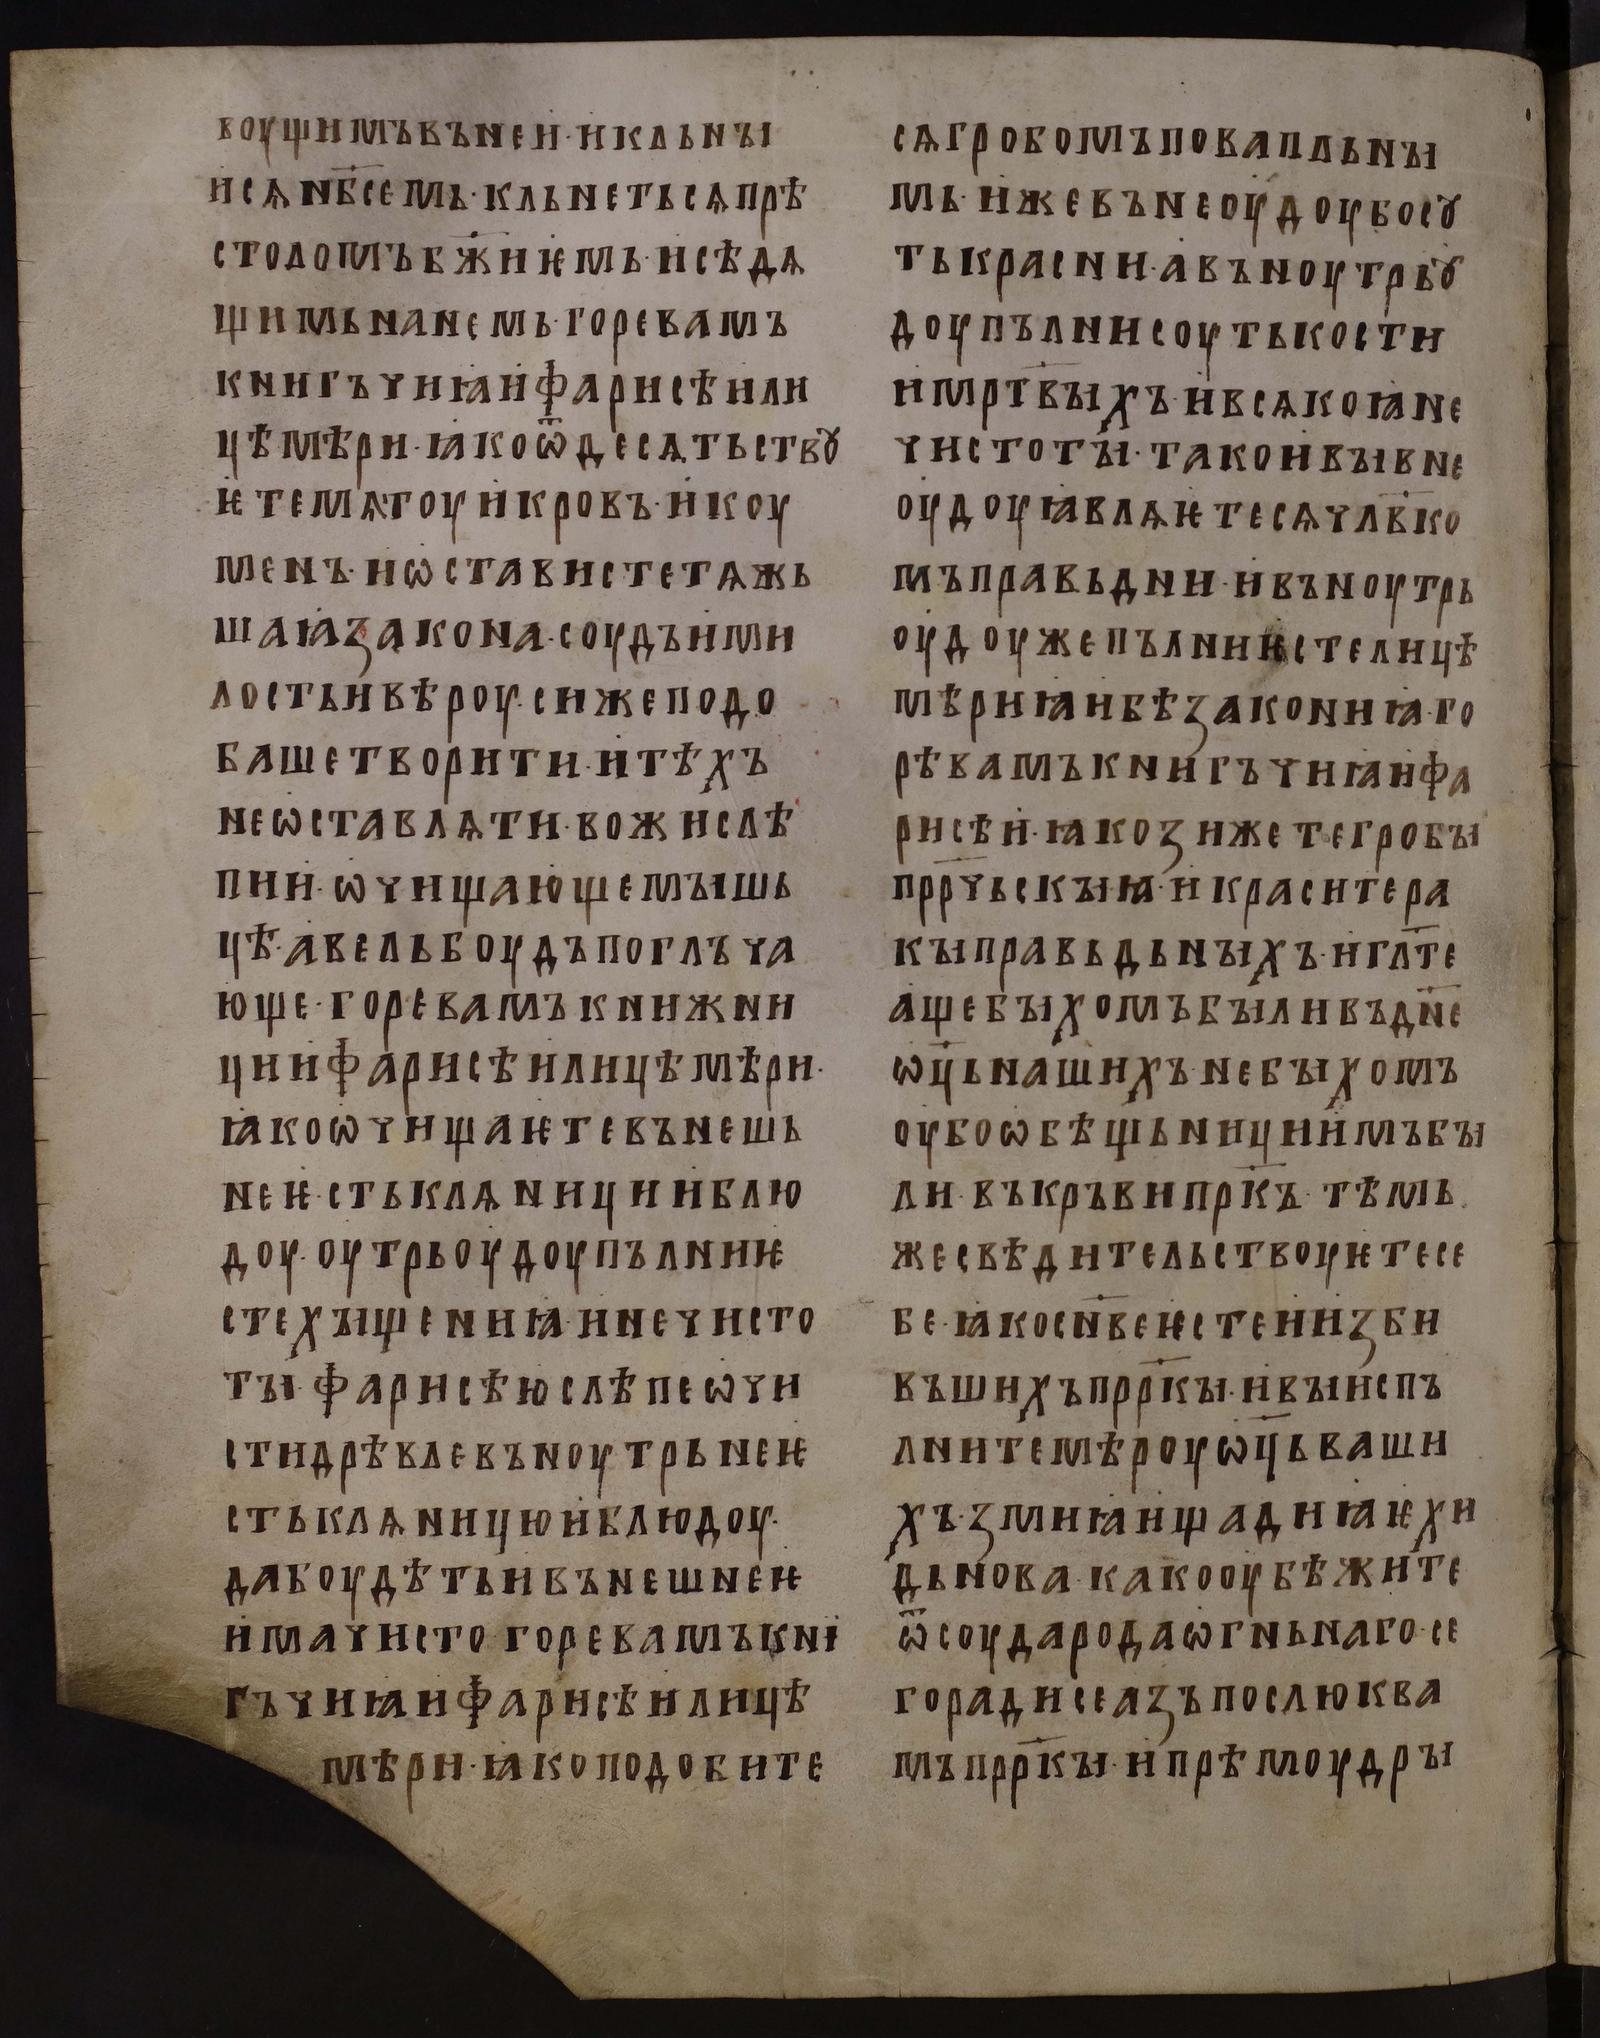 воущимъвънеи·икльнꙑ
исѧнб҃семь·кльнетьсѧпрѣ
столомъбж҃иѥмь·исѣдѧ
щимьнанемь·горевамъ
книгъчиꙗифарисѣили
цѣмѣри·ꙗкоѿдесѧтьствꙋ
ѥтемѧтоуикровъ·икоу
менъ·иѡстависте тѧжь
шаꙗꙁакона·соудъими
лостьивѣроу·сижеподо
башетворити·итѣхъ
неѡставлѧти·вожислѣ
пии·ѡчищающемꙑшь
цѣ·авельбоудъпоглъча
юще·горевамъкнижни
циифарисѣилицѣмѣри·
ꙗкоѡчищаѥтевънешь
неѥ·стьклѧницииблю
доу·оутрьоудоупълниѥ
стехꙑщениꙗ·инечисто
тꙑ·фарисѣюслѣпеѡчи
стидрѣвлевъноутрьнеѥ
стьклѧницюиблюдоу·
дабоудѣтьивънешнеѥ
имачисто·горевамъкнї
гъчиꙗифарисѣилицѣ
мѣри·ꙗкоподобите
сѧгробомъповапльнꙑ
мь·ижевънеоудоубосꙋ
тькрасни·авъноутрьꙋ
доупълнисоутькости
имрт҃вꙑхъ·ивсѧкоꙗне
чистотꙑ·такоивꙑвне
оудоуꙗвлѧѥтесѧчлв҃ко
мъправьдни·ивъноутрь
оудоужепълниѥстелицѣ
мѣриꙗибѣꙁакониꙗ·го
рѣвамъкнигъчиꙗифа
рисѣи·ꙗкоꙁижетегробꙑ
прр҃чьскꙑꙗ·икраситера
кꙑправьдьнꙑхъ·игл҃те
ащебꙑхомъбꙑливъдн҃е
ѡц҃ьнашихъ·небꙑхомъ
оубоѡбѣщьнициимъбꙑ
ли·въкръвипрк҃ъ·тѣмь
жесвѣдительствоуѥтесе
бе·ꙗкосн҃веѥстеиꙁби
въшихъпрр҃кꙑ·ивꙑиспъ
лнитемѣроуѡц҃ьваши
хъ·ꙁмиꙗищадиꙗѥхи
дьнова·какооубѣжите
ѿсоудародаѡгньнаго·се
горадисеаꙁъпослюква
мъпрр҃кꙑ·ипрѣмоудрꙑ